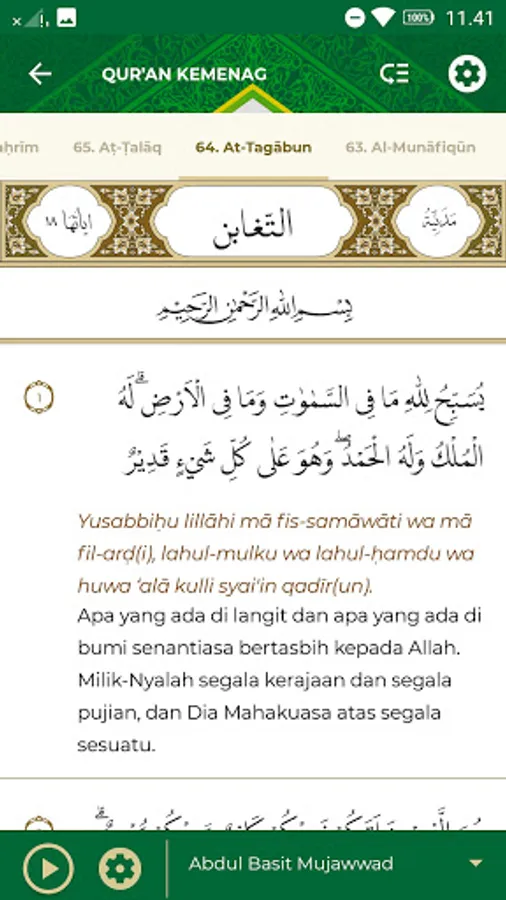 100% 11.41
QUR'AN KEMENAG
aḥrīm 65. Aṭ-Ṭalāq 64. At-Tagābun 63. Al-Munāfiqūn
اياتها ١٨ التّغابن مَدَنِيَّةٌ
بِسْمِ اللّٰهِ الرَّحْمٰنِ الرَّحِيْمِ
١
يُسَبِّحُ لِلّٰهِ مَا فِى السَّمٰوٰتِ وَمَا فِى الْاَرْضِۚ لَهُ
الْمُلْكُ وَلَهُ الْحَمْدُۖ وَهُوَ عَلٰى كُلِّ شَيْءٍ قَدِيْرٌ
Yusabbiḥu lillāhi mā fis-samāwāti wa mā
fil-arḍ(i), lahul-mulku wa lahul-ḥamdu wa
huwa ‘alā kulli syai'in qadīr(un).
Apa yang ada di langit dan apa yang ada di
bumi senantiasa bertasbih kepada Allah.
Milik-Nyalah segala kerajaan dan segala
pujian, dan Dia Mahakuasa atas segala
sesuatu.
Abdul Basit Mujawwad